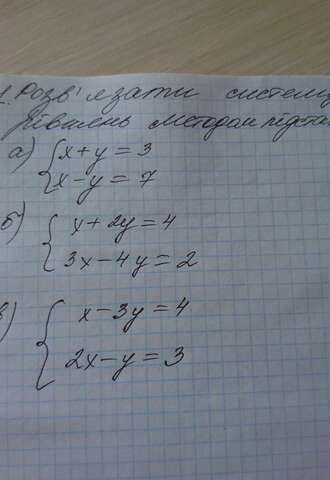 1. Розв'язати систему
рівнянь методом
а) { x+y=3
x-y=7
б) { x+2y=4
3x-4y=2
в) { x-3y=4
2x-y=3